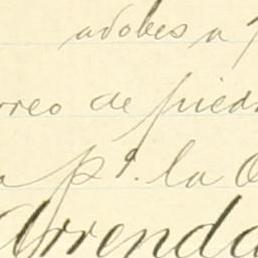 adobes a
rreo de pied
a pª. la O
Arrenda